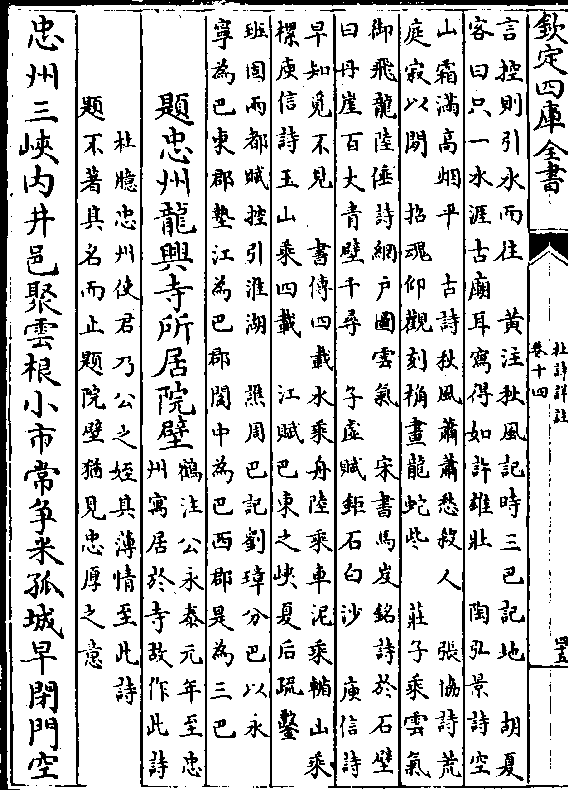 欽定四庫全書
杜詩詳註
卷十四
言控則引水而往　黃注秋風記時三巴記地　胡夏
客曰只一水涯古廟耳寫得如許雄壯　陶弘景詩空
山霜滿高烟平　古詩秋風蕭蕭愁殺人　張協詩荒
庭寂以閒　招魂仰觀刻桷畫龍蛇些　莊子乘雲氣
御飛龍陸倕詩網戶圖雲氣　宋書馬岌銘詩於石壁
曰丹崖百丈青壁千尋　子虛賦鉅石白沙　庾信詩
早知覓不見　書傳四載水乘舟陸乘車泥乘輴山乘
樏庾信詩玉山乘四載　江賦巴東之峽夏后疏鑿
班固兩都賦控引淮湖　譙周巴記劉璋分巴以永
寧為巴東郡墊江為巴郡閬中為巴西郡是為三巴
題忠州龍興寺所居院壁
鶴注公永泰元年至忠
州寓居於寺故作此詩
杜臆忠州使君乃公之姪其薄情至此詩
題不著其名而止題院壁猶見忠厚之意
忠州三峽內井邑聚雲根小市常爭米孤城早閉門空